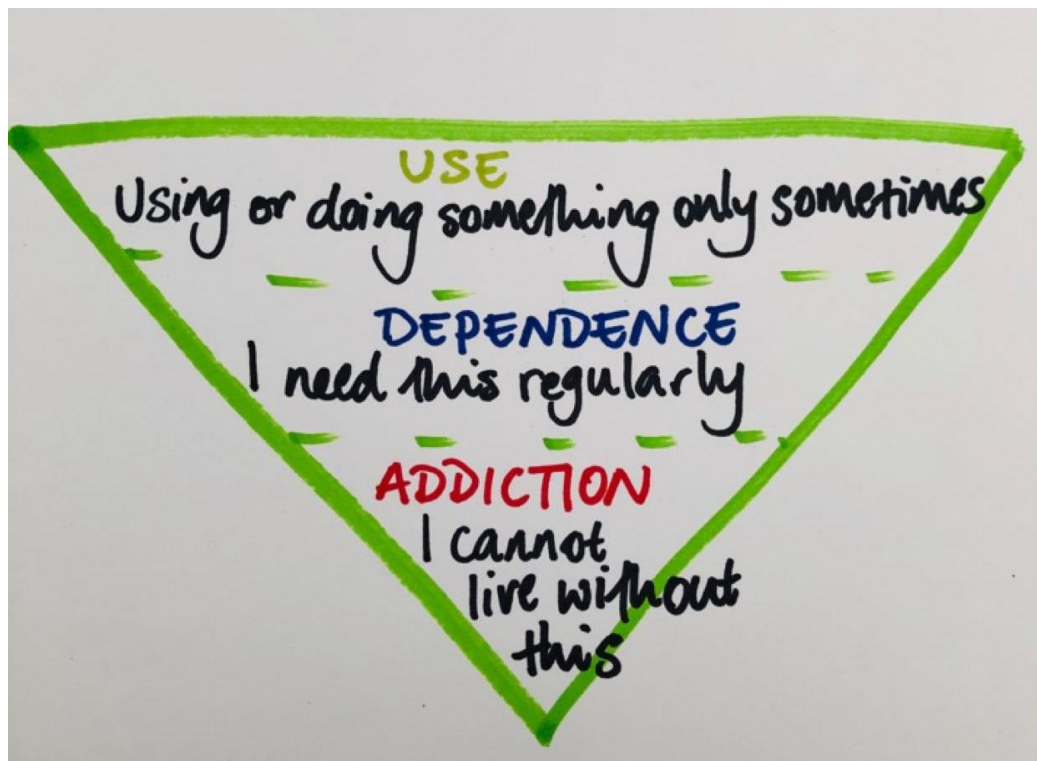 USE
Using or doing something only sometimes
DEPENDENCE
I need this regularly
ADDICTION
I cannot
live without
this